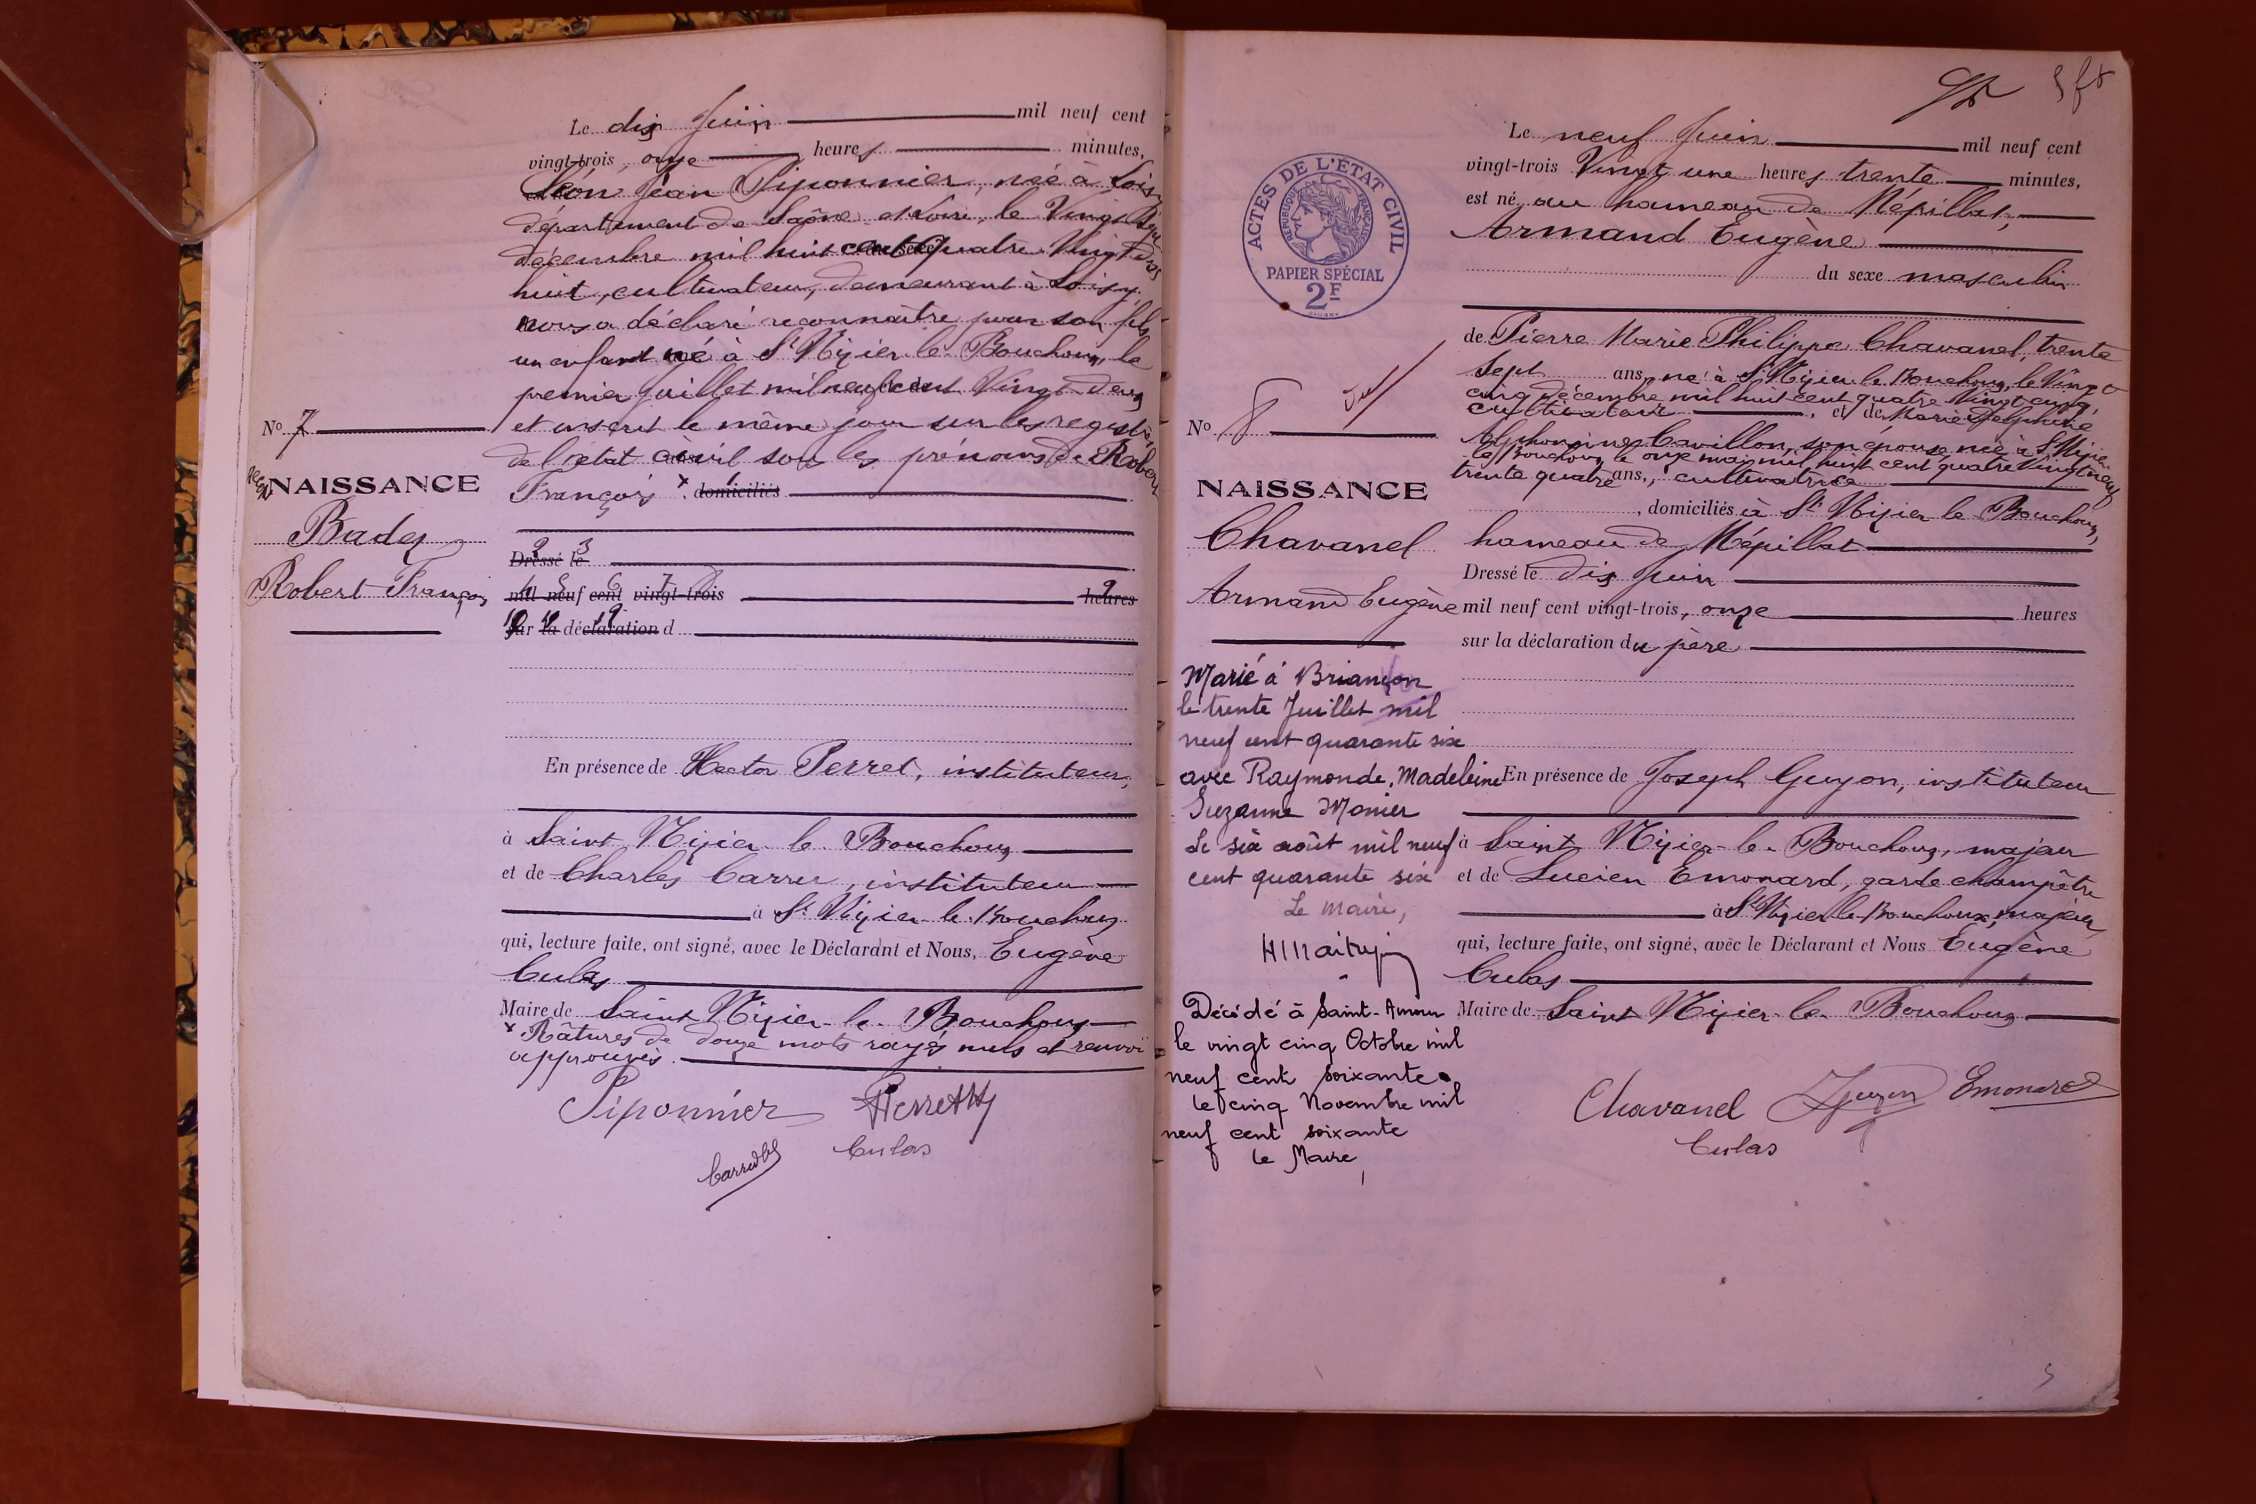 Le dix Juin mil neuf cent
vingt-trois, onze heures minutes,
Léon Jean Piponnier, né à Loisy
département de Saône et Loire, le Vingt
décembre mil huit cent quatre Vingt dix
huit, cultivateur, demeurant à Loisy.
nous a déclaré reconnaître pour son fils
un enfant né à St Nizier le Bouchoux, le
premier Juillet mil neuf cent Vingt deux
No 7
et inscrit le même jour sur les registres
de l'état civil sous les prénoms de Robert
NAISSANCE
François x domiciliés
Badez
Dressé le
Robert François
mil neuf cent vingt-trois heures
sur la déclaration d
En présence de Hector Perret, instituteur,
à Saint Nizier le Bouchoux
et de Charles Carru, instituteur
à St Nizier le Bouchoux
qui, lecture faite, ont signé, avec le Déclarant et Nous, Eugène
Culas
Maire de Saint Nizier le Bouchoux
x Râtures de douze mots rayés nuls et renvoi
approuvés.
Piponnier Perret
Culas
Le neuf Juin mil neuf cent
vingt-trois Vingt une heures trente minutes,
est né, au hameau de Mépillat,
Armand Eugène
du sexe masculin
ACTES DE L'ÉTAT CIVIL
RÉPUBLIQUE FRANÇAISE
PAPIER SPÉCIAL
2F
de Pierre Marie Philippe Chavanel, trente
sept ans, né à St Nizier le Bouchoux, le Vingt
cinq décembre mil huit cent quatre Vingt cinq,
cultivateur, et de Marie Delphine
No 8
Alphonsine Cavillon, son épouse née à St Nizier
le Bouchoux le onze mai mil huit cent quatre Vingt neuf
trente quatre ans, cultivatrice
NAISSANCE
, domiciliés à St Nizier le Bouchoux,
Chavanel
hameau de Mépillat
Dressé le dix Juin
Armand Eugène
mil neuf cent vingt-trois, onze heures
sur la déclaration du père
Marié à Briançon
le trente Juillet mil
neuf cent quarante six
avec Raymonde, Madeleine
Suzanne Monier
Le six août mil neuf
cent quarante six
Le Maire,
En présence de Joseph Guyon, instituteur
à Saint Nizier-le-Bouchoux, majeur
et de Lucien Emonard, garde champêtre
à St Nizier le Bouchoux, majeur,
qui, lecture faite, ont signé, avec le Déclarant et Nous Eugène
Culas
Maire de Saint Nizier-le-Bouchoux
Décédé à Saint-Amour
le vingt cinq Octobre mil
neuf cent soixante.
le cinq Novembre mil
neuf cent soixante
le Maire,
Chavanel JGuyon Emonard
Culas